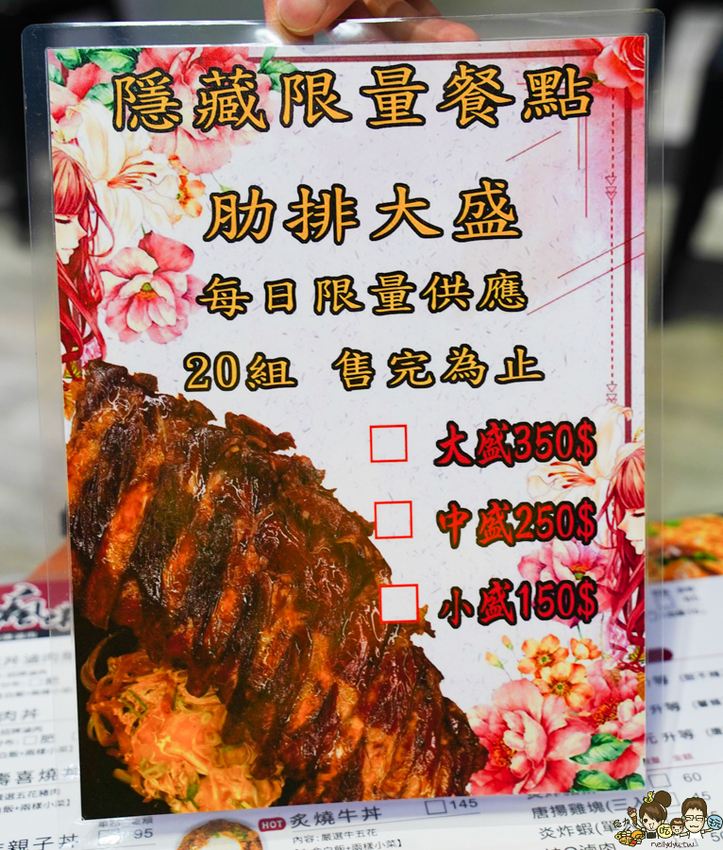 隱藏限量餐點
肋排大盛
每日限量供應
20組 售完為止
大盛350$
中盛250$
小盛150$
肉丼
肥
95
親子丼
HOT 炙燒牛丼
145
內容：嚴選牛五花
60
45
唐揚雞塊(三
炎炸蝦(單
nellydyu.tw